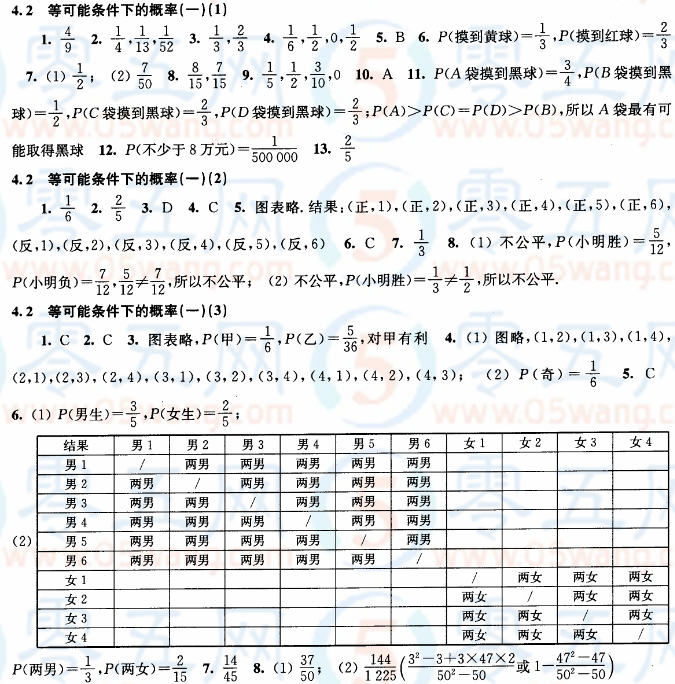 4.2 等可能条件下的概率(一)(1)
1. 4/9 2. 1/4,1/13,1/52 3. 1/3,2/3 4. 1/6,1/2,0,1/2 5. B 6. P(摸到黄球)=1/3,P(摸到红球)=2/3
7. (1) 1/2; (2) 7/50 8. 8/15,7/15 9. 1/5,1/2,3/10,0 10. A 11. P(A袋摸到黑球)=3/4,P(B袋摸到黑
球)=1/2,P(C袋摸到黑球)=2/3,P(D袋摸到黑球)=2/3;P(A)>P(C)=P(D)>P(B),所以A袋最有可
能取得黑球 12. P(不少于8万元)=1/500 000 13. 2/5
4.2 等可能条件下的概率(一)(2)
1. 1/6 2. 2/5 3. D 4. C 5. 图表略.结果:(正,1),(正,2),(正,3),(正,4),(正,5),(正,6),
(反,1),(反,2),(反,3),(反,4),(反,5),(反,6) 6. C 7. 1/3 8. (1) 不公平,P(小明胜)=5/12,
P(小明负)=7/12,5/12≠7/12,所以不公平; (2) 不公平,P(小明胜)=1/3≠1/2,所以不公平.
4.2 等可能条件下的概率(一)(3)
1. C 2. C 3. 图表略,P(甲)=1/6,P(乙)=5/36,对甲有利 4. (1) 图略,(1,2),(1,3),(1,4),
(2,1),(2,3),(2,4),(3,1),(3,2),(3,4),(4,1),(4,2),(4,3); (2) P(奇)=1/6 5. C
6. (1) P(男生)=3/5,P(女生)=2/5;
(2)
结果 男1 男2 男3 男4 男5 男6 女1 女2 女3 女4
男1 / 两男 两男 两男 两男 两男
男2 两男 / 两男 两男 两男 两男
男3 两男 两男 / 两男 两男 两男
男4 两男 两男 两男 / 两男 两男
男5 两男 两男 两男 两男 / 两男
男6 两男 两男 两男 两男 两男 /
女1 / 两女 两女 两女
女2 两女 / 两女 两女
女3 两女 两女 / 两女
女4 两女 两女 两女 /
P(两男)=1/3,P(两女)=2/15 7. 14/45 8. (1) 37/50; (2) 144/1 225(3²-3+3×47×2/50²-50或1-47²-47/50²-50)
零五网
www.05wang.com